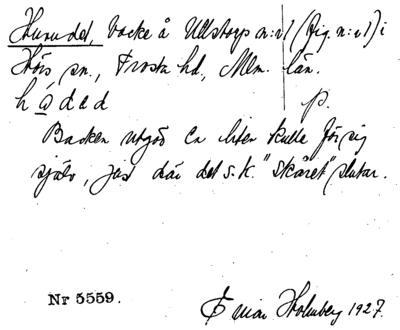 Huvudet, backe å Ullstorps n:r 1 (fig. n:r 1) i
Hörs sn., Frosta hd, Mlm. län.
p.
Backen utgör en liten kulle för sig
själv, just där det s.k. "skåret" slutar.
Nr 5559.
Holmberg 1927.